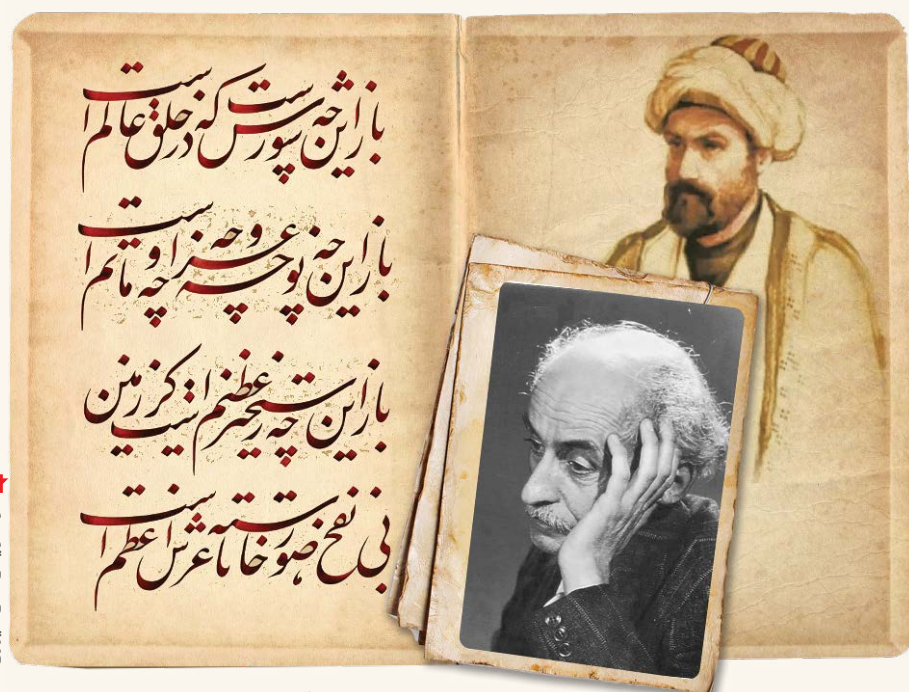 باز این چه شورش است که در خلق عالم است
باز این چه نوحه و چه عزا و چه ماتم است
باز این چه رستخیز عظیم است کز زمین
بی نفخ صور خاسته تا عرش اعظم است